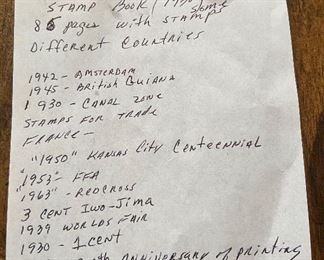 STAMP BOOK
Some
86 pages with stamps
Different Countries
1942 - AMSTERDAM
1945 - BRitish Guiana
1930 - CANAL ZONE
STAMPS FOR TRADE
FRANCE -
"1950" KANSAS City CENTEENNIAL
"1953" FFA
"1963" - REDCROSS
3 CENT IWO-Jima
1939 WORLDS FAIR
1930 - 1 CENT
Anniversary of printing